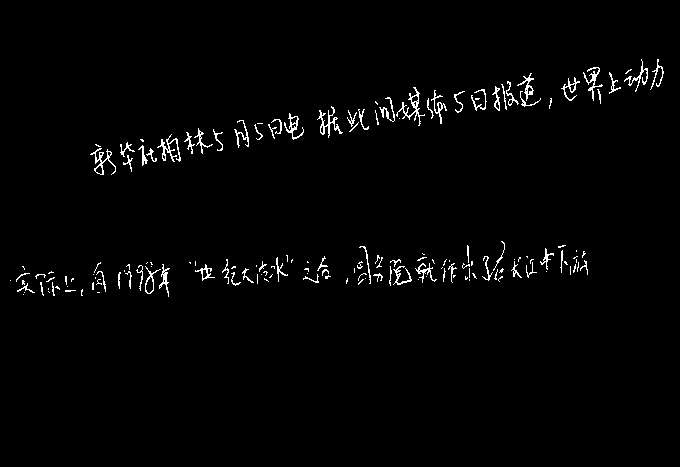 新华社柏林5月5日电 据此间媒体5日报道，世界上动力
实际上，自1998年“世纪大洪水”之后，国务院就作出了在长江中下游